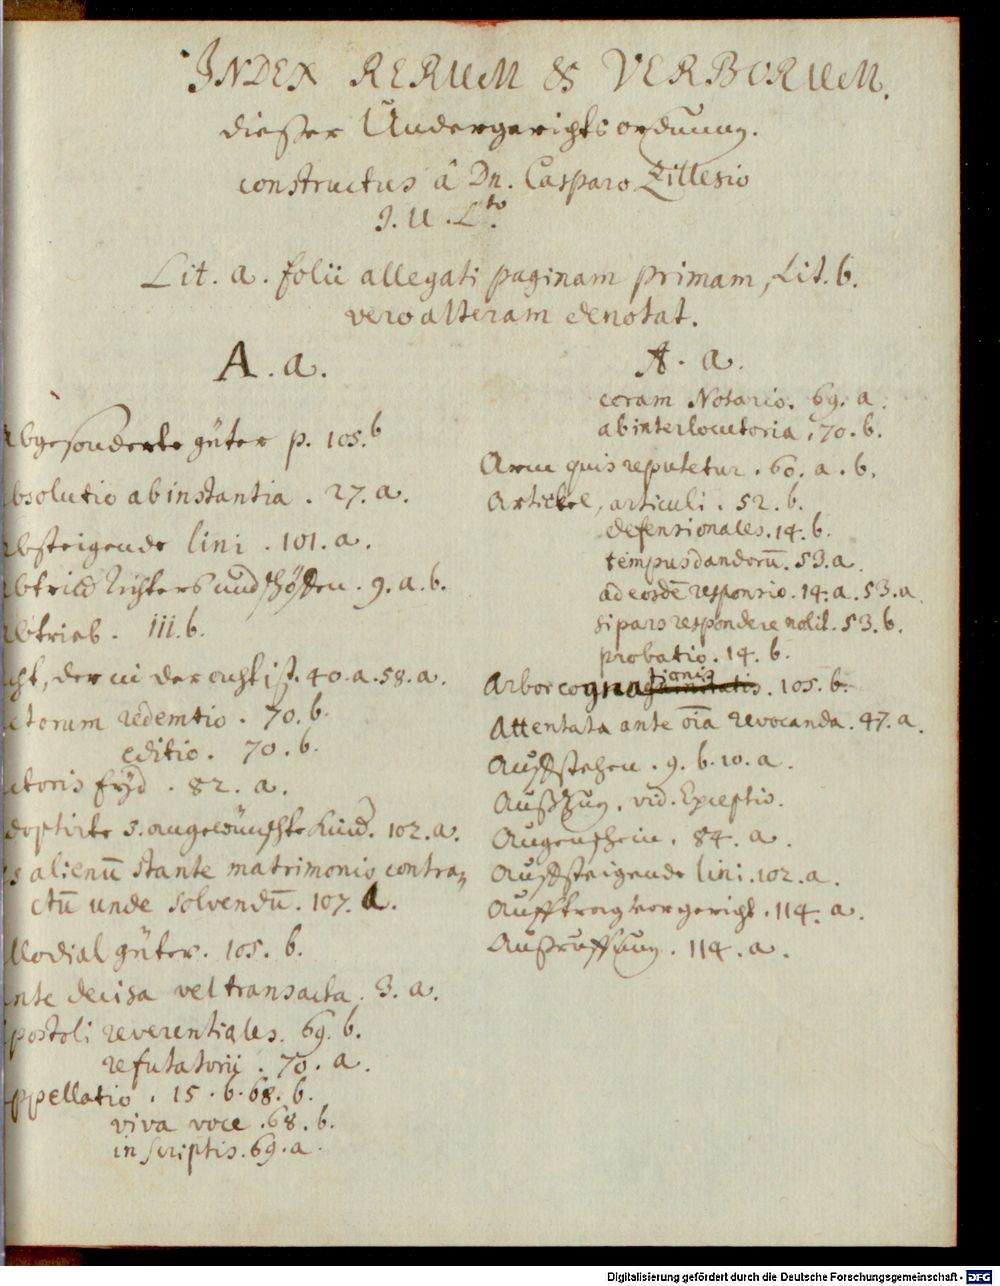 INDEX RERUM & VERBORUM.
dießer Undergerichtsordnung.
constructus â Dn. Casparo Zillesio
J. U. L.to
Lit. a. folii allegati paginam primam, Lit. b.
vero alteram denotat.
A. a.
Abgesonderte güter p. 105. b
Absolutio ab instantia. 27. a.
Absteigende lini. 101. a.
Abtritt Richters und schöffen. 9. a. b.
Abtrieb. 111. b.
Acht, der in der acht ist. 40. a. 58. a.
Actorum redemtio. 70. b.
editio. 70. b.
Actoris eyd. 82. a.
Adoptirte s. angewünschte Kind. 102. a.
Æs alienū stante matrimonio contra-
ctū unde solvendū. 107. a.
Allodial güter. 105. b.
Ante decisa vel transacta. 3. a.
Apostoli reverentiales. 69. b.
refutatorii. 70. a.
Appellatio. 15. b. 68. b.
viva voce. 68. b.
in scriptis. 69. a.
A. a.
coram Notario. 69. a.
ab interlocutoria. 70. b.
Arm quis reputetur. 60. a. b.
Artickel, articuli. 52. b.
defensionales. 14. b.
tempus dandorū. 53. a.
ad eosdē responsio. 14. a. 53. a.
si pars respondere nolit. 53. b.
probatio. 14. b.
Arbor cognationis. 105. b.
Attentata ante oīa revocanda. 47. a.
Auffstehen. 9. b. 10. a.
Außzug. vid. Exceptio.
Augenschein. 84. a.
Auffsteigende lini. 102. a.
Aufftrag vor gericht. 114. a.
Außruffung. 114. a.
Digitalisierung gefördert durch die Deutsche Forschungsgemeinschaft - DFG